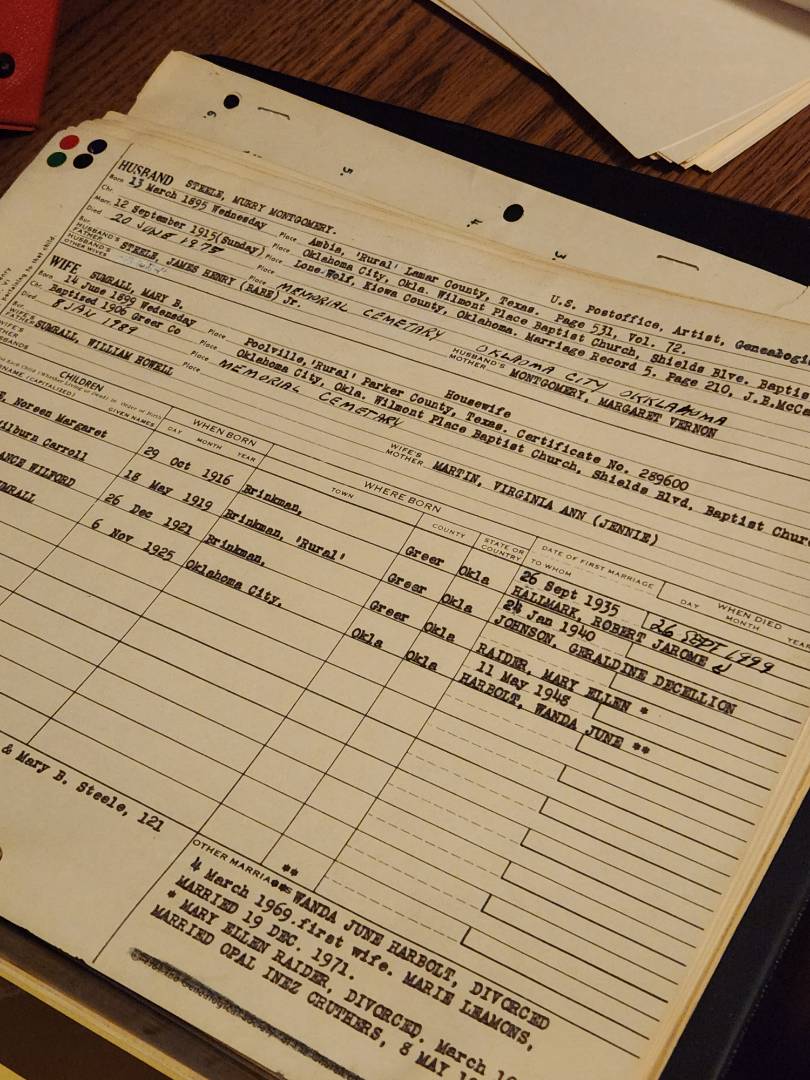 HUSBAND STEELE, MURRY MONTGOMERY.
Born 13 March 1895 Wednesday Place Ambia, 'Rural' Lamar County, Texas. U.S. Postoffice, Artist, Genealogi
Chr. Place Oklahoma City, Okla. Wilmont Place Baptist Church, Shields Blve. Baptis
Marr. 12 September 1915(Sunday) Place Lone Wolf, Kiowa County, Oklahoma. Marriage Record 5. Page 210, J.B.McCa
Page 531, Vol. 72.
Died 20 JUNE 1975 Place
Bur. Place MEMORIAL CEMETARY OKLAOMA CITY OKKLAHUMA
HUSBAND'S FATHER STEELE, JAMES HENRY (BABE) Jr. HUSBAND'S MOTHER MONTGOMERY, MARGARET VERNON
HUSBAND'S OTHER WIVES
WIFE SUMRALL, MARY B. Housewife
Born 14 June 1899 Wednesday Place Poolville, 'Rural' Parker County, Texas. Certificate No. 289600
Chr. Baptized 1906 Greer Co Place Oklahoma City, Okla. Wilmont Place Baptist Church, Shields Blvd. Baptist Chur
Died 8 JAN 1989 Place
Bur. Place MEMORIAL CEMETARY
WIFE'S FATHER SUMRALL, WILLIAM HOWELL WIFE'S MOTHER MARTIN, VIRGINIA ANN (JENNIE)
CHILDREN
GIVEN NAMES
WHEN BORN
DAY MONTH YEAR
WHERE BORN
TOWN COUNTY STATE OR COUNTRY
DATE OF FIRST MARRIAGE
TO WHOM
WHEN DIED
DAY MONTH YEAR
Noreen Margaret 29 Oct 1916 Brinkman, Greer Okla 26 Sept 1935 26 SEPT 1999
HALLMARK, ROBERT JAROME
Wilburn Carroll 18 May 1919 Brinkman, 'Rural' Greer Okla 24 Jan 1940
JOHNSON, GERALDINE DECELLION
ANCE WILFORD 26 Dec 1921 Brinkman, Greer Okla
RAIDER, MARY ELLEN *
MRALL 6 Nov 1925 Oklahoma City, Okla Okla 11 May 1948
HARBOLT, WANDA JUNE **
& Mary B. Steele, 121
OTHER MARRIAGES
** WANDA JUNE HARBOLT, DIVORCED
4 March 1969.first wife. MARIE LEAMONS,
MARRIED 19 DEC. 1971.
* MARY ELLEN RAIDER, DIVORCED. March
MARRIED OPAL INEZ CRUTHERS, 8 MAY